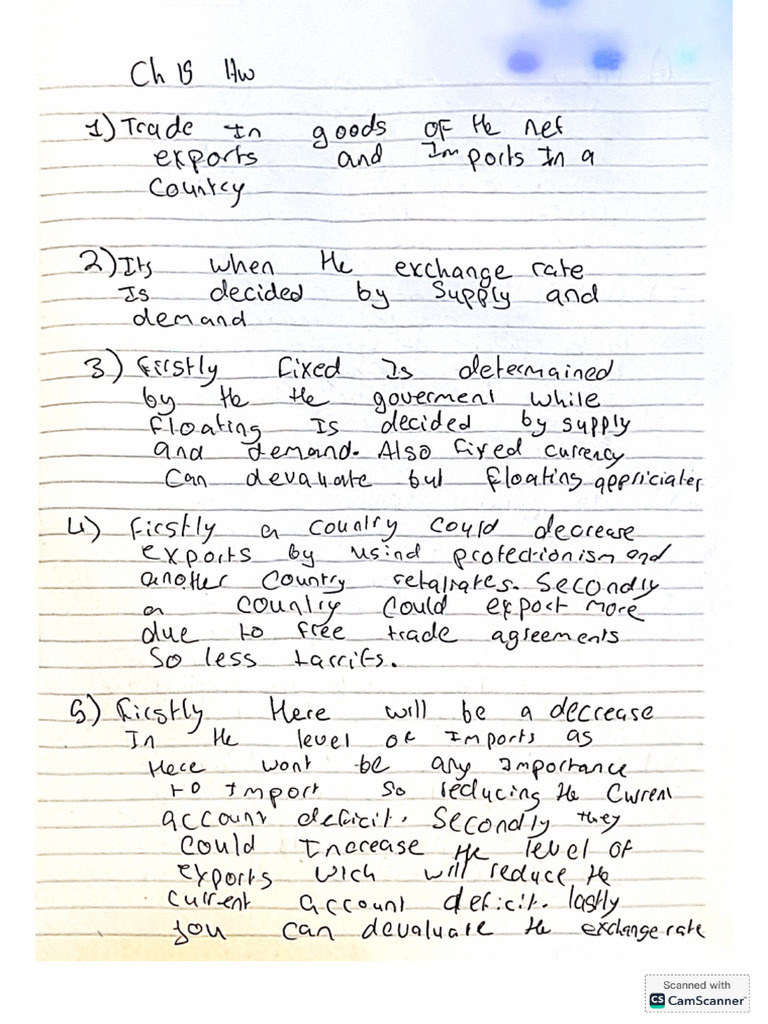 Ch 15 Hw
1) Trade In goods of the net
exports and Imports In a
Country
2) Its when the exchange rate
Is decided by Supply and
demand
3) Firstly fixed Is determained
by the the goverment while
floating Is decided by supply
and demand. Also fixed currency
can devaluate but floating appriciates
4) Firstly a country could decrease
exports by usind protectionism and
another Country retaliates. Secondly
a country could export more
due to free trade agreements
So less tarrifs.
5) Firstly there will be a decrease
In the level of Imports as
there wont be any Importance
to Import so reducing the Current
account deficit. Secondly they
could Increase the level of
exports wich will reduce the
current account deficit. lastly
you can devaluate the exchange rate
Scanned with
CS CamScanner